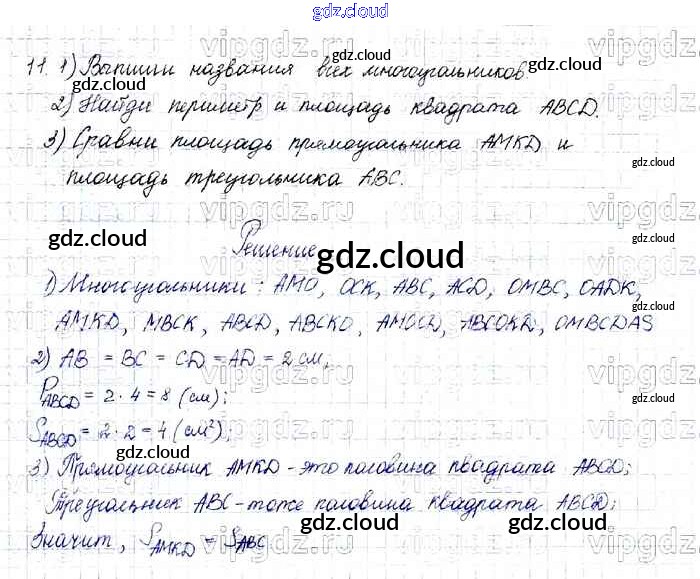 gdz.cloud
11. 1) Выпиши названия всех многоугольников.
2) Найди периметр и площадь квадрата ABCD.
3) Сравни площадь прямоугольника AMKD и
площадь треугольника ABC.
gdz.cloud
Решение
gdz.cloud
1) Многоугольники: AMO, OCK, ABC, ACD, OMBC, OADK,
AMKD, MBCK, ABCD, ABCKO, AMOCD, ABCOKD, OMBCDAS
2) AB = BC = CD = AD = 2 см,
P ABCD = 2 · 4 = 8 (см);
S ABCD = 2 · 2 = 4 (см²);
3) Прямоугольник AMKD - это половина квадрата ABCD;
Треугольник ABC - тоже половина квадрата ABCD;
Значит, S AMKD = S ABC
gdz.cloud
vipgdz.ru